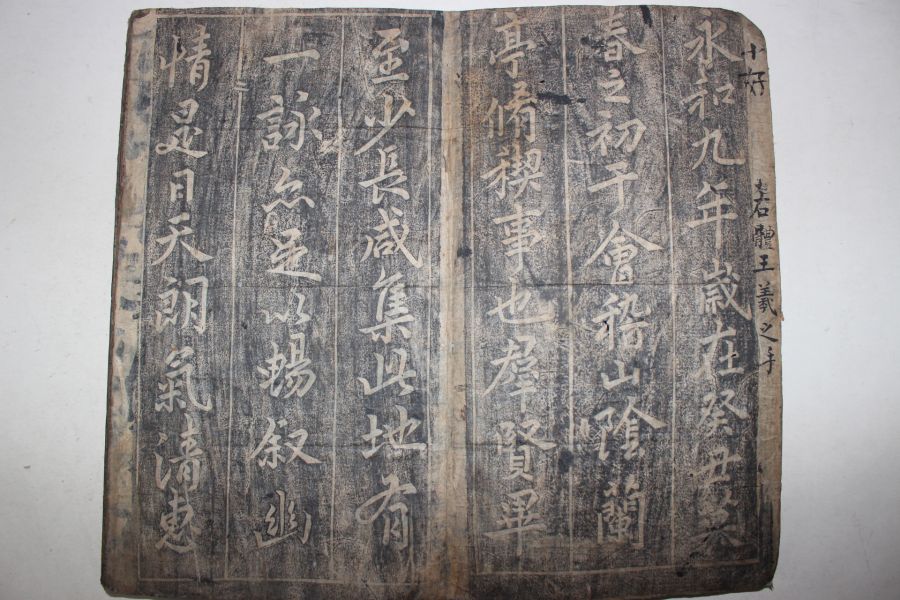 體王羲之手
永和九年歲在癸丑暮
春之初于會稽山陰蘭
亭脩稧事也羣賢畢
至少長咸集此地有
一詠亦足以暢叙幽
情是日天朗氣清惠